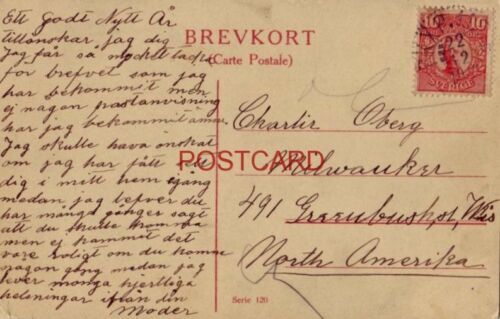 Ett godt Nytt År
tillönskar jag dig
Jag får så mycket tacka
for brefvet som jag
har bekommit men
ej nagon postanvisning
har jag bekommit ännu
Jag skulle hava önskat
om jag har fått sett
dig i mitt hem igång
medan jag lefver du
har mänga gånger sagt
att du skulle komma
men ej kommit det
vore roligt om du komme
nagon gång medan jag
lever monga hjertliga
helsningar ifrån din
Moder
BREVKORT
(Carte Postale)
10 10
SVERIGE
22
Charlie Oberg
POSTCARD
Milwauker
491 Greenbush, st, Wis
North Amerika
Serie 120